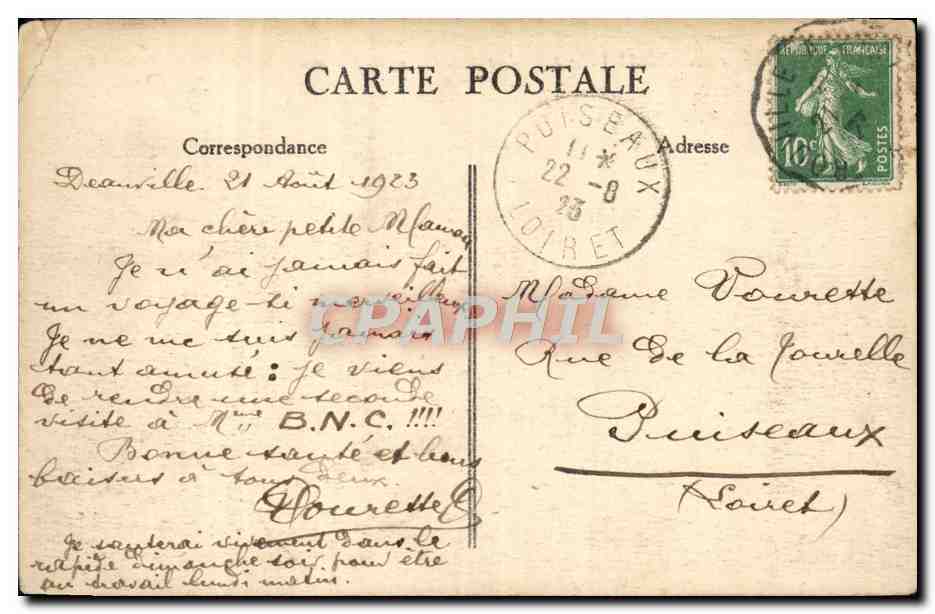 CARTE POSTALE
Correspondance
Deauville. 21 Août 1923
Ma chère petite Maman
Je n'ai jamais fait
un voyage si merveilleux
Je ne me suis jamais
autant amusé : je viens
de rendre une seconde
visite à Mme B.N.C. !!!!
Bonne santé et bons
baisers à tous deux.
Vourette
Je sauterai vivement dans le
rapide dimanche soir pour être
au travail lundi matin.
PUISEAUX
11 *
22 -8
23
LOIRET
Adresse
REPUBLIQUE FRANÇAISE
10c
POSTES
VILLE
Madame Vourette
Rue de la Tourelle
Puiseaux
(Loiret)
CPAPHIL